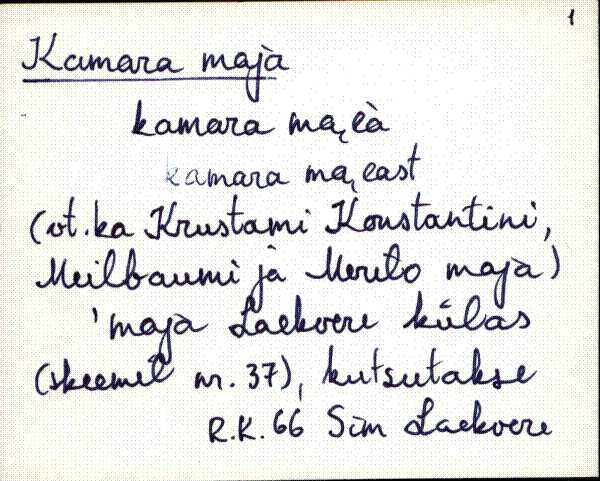 1
Kamara maja
kamara mai̯eà
kamara mai̯east
(vt. ka Krustami Konstantini,
Meilbaumi ja Merilo maja)
'maja Laekvere külas
(skeemil nr. 37), kutsutakse
R.K. 66 Sim Laekvere